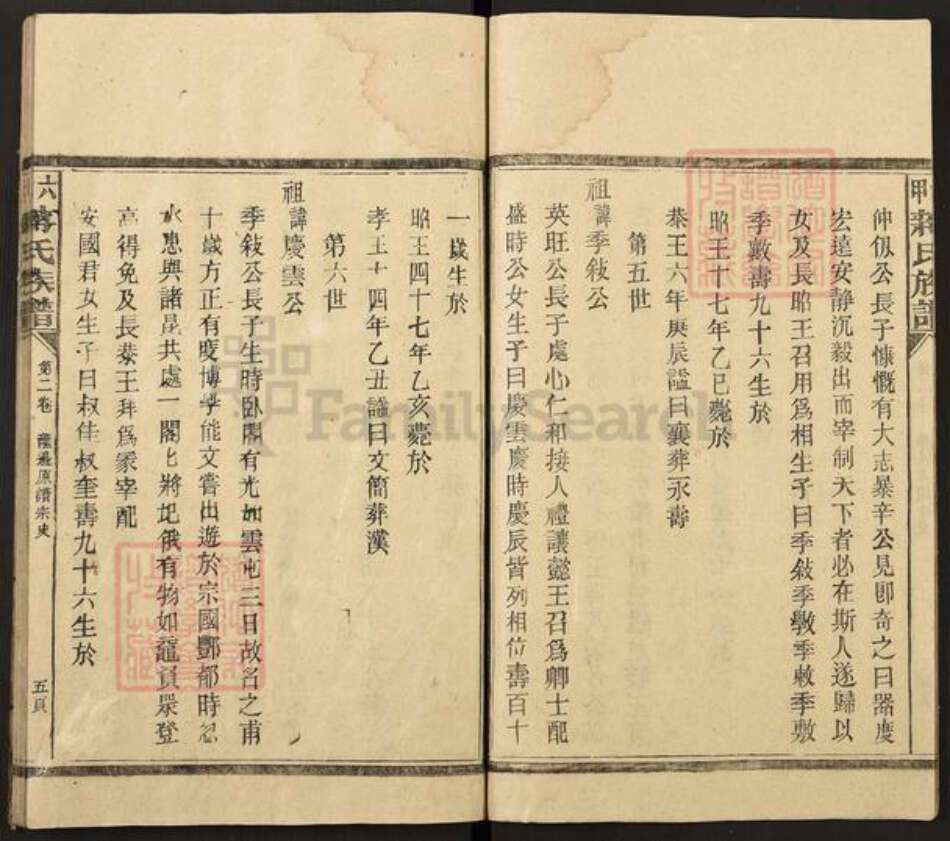 蔣氏族譜
仲仭公長子慷慨有大志暴辛公見卽奇之曰器度
宏遠安靜沉毅出而宰制天下者必在斯人遂歸以
女及長昭王召用爲相生子曰季敍季斆季敕季敷
季敷壽九十六生於
昭王十七年乙巳薨於
恭王六年庚辰諡曰襄葬永壽
第五世
祖諱季敍公
英旺公長子處心仁和接人禮讓懿王召爲卿士配
盛時公女生子曰慶雲慶時慶辰皆列相位壽百十
一歲生於
昭王四十七年乙亥薨於
孝王十四年乙丑諡曰文簡葬漢
第六世
祖諱慶雲公
季敍公長子生時臥閣有光如雲屯三日故名之甫
十歲方正有度博學能文嘗出遊於宗國酆都時忽
水患與諸昆共處一閣七將圮俄有物如龍負眾登
高得免及長恭王拜爲冢宰配
安國君女生子曰叔佳叔奎壽九十六生於
六
蔣氏族譜
第二卷
原讚宗史
五頁
FamilySearch